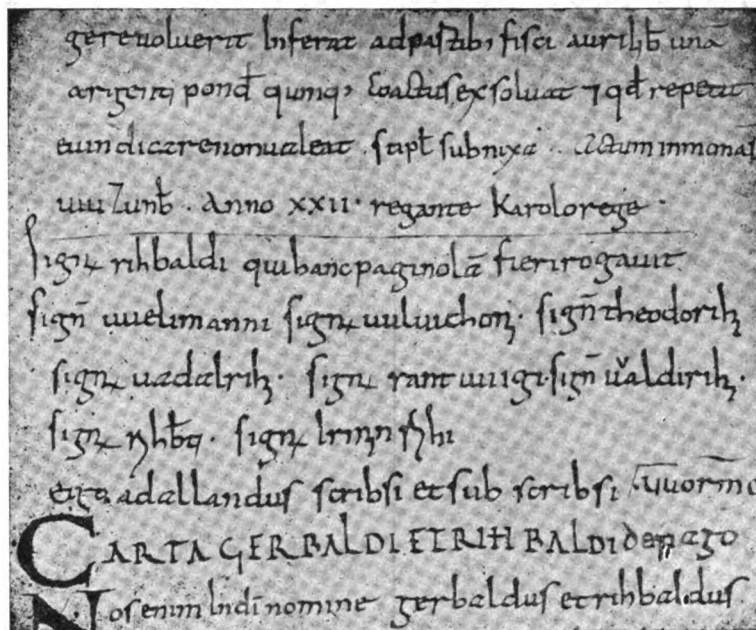 gereuoluerit Inferat adpartib; fisci auri lib̄ unā
argenti pond̄ quinq; coactus exsoluat ⁊ qd̄ repetit
euindicare nonualeat stipl̄ subnixa. Actum inmonas
Anno XXII· regante Karolo rege·
sign rihbaldi qui hanc paginolā fieri rogauit
sign̄ uuelimanni sign sign̄ theodorih
sign uadalrih· sign rantuuigi· sign̄ ualdirih·
sign sign
ego adallandus scribsi et sub scribsi
CARTA GERBALDI ET RIHBALDI de pago
Nos enim Indī nomine gerbaldus et rihbaldus